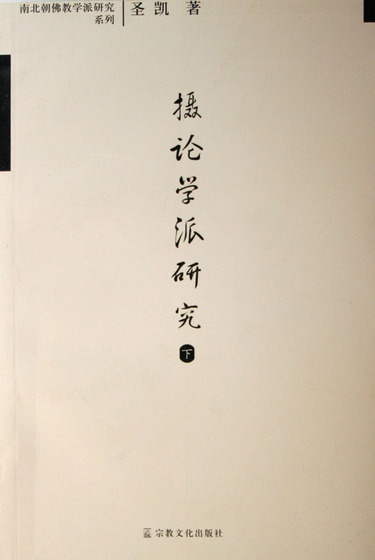 南北朝佛教学派研究
系列
圣凯 著
摄论学派研究
下
宗教文化出版社